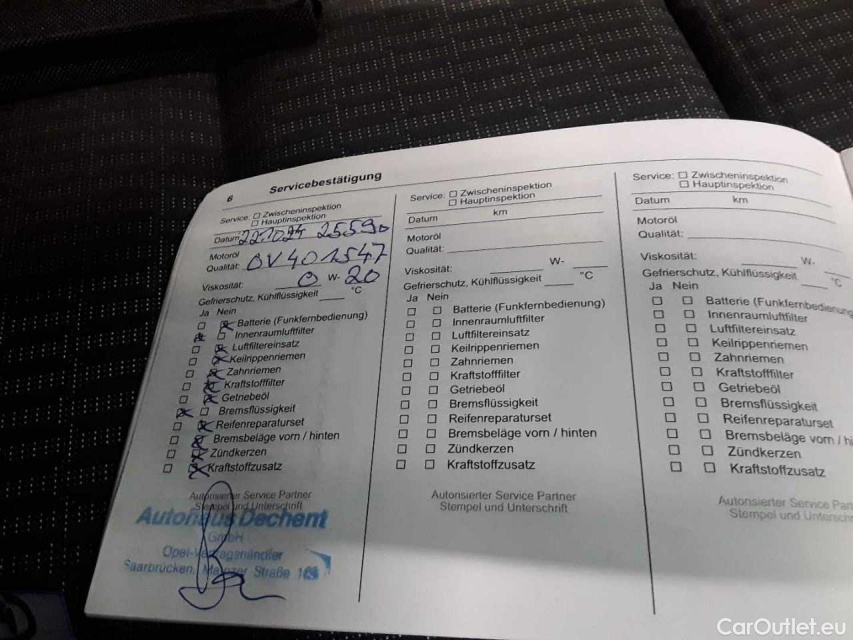 6 Servicebestätigung
Service: □ Zwischeninspektion
□ Hauptinspektion
Datum 25590
Motoröl
Qualität: OV401547
Viskosität: 0 W- 20
Gefrierschutz, Kühlflüssigkeit ____ °C
Ja Nein
Batterie (Funkfernbedienung)
Innenraumluftfilter
Luftfiltereinsatz
Keilrippenriemen
Zahnriemen
Kraftstofffilter
Getriebeöl
Bremsflüssigkeit
Reifenreparaturset
Bremsbeläge vorn / hinten
Zündkerzen
Kraftstoffzusatz
Autorisierter Service Partner
Stempel und Unterschrift
Autohaus Dechent
GmbH
Opel-Vertragshändler
Saarbrücken, Mainzer Straße
Service: □ Zwischeninspektion
□ Hauptinspektion
Datum km
Motoröl
Qualität:
Viskosität: ____ W- ____
Gefrierschutz, Kühlflüssigkeit ____ °C
Ja Nein
□ □ Batterie (Funkfernbedienung)
□ □ Innenraumluftfilter
□ □ Luftfiltereinsatz
□ □ Keilrippenriemen
□ □ Zahnriemen
□ □ Kraftstofffilter
□ □ Getriebeöl
□ □ Bremsflüssigkeit
□ □ Reifenreparaturset
□ □ Bremsbeläge vorn / hinten
□ □ Zündkerzen
□ □ Kraftstoffzusatz
Autorisierter Service Partner
Stempel und Unterschrift
Service: □ Zwischeninspektion
□ Hauptinspektion
Datum km
Motoröl
Qualität:
Viskosität: ____ W-
Gefrierschutz, Kühlflüssigkeit ____ °C
Ja Nein
□ □ Batterie (Funkfernbedienung
□ □ Innenraumluftfilter
□ □ Luftfiltereinsatz
□ □ Keilrippenriemen
□ □ Zahnriemen
□ □ Kraftstofffilter
□ □ Getriebeöl
□ □ Bremsflüssigkeit
□ □ Reifenreparaturset
□ □ Bremsbeläge vorn / hi
□ □ Zündkerzen
□ □ Kraftstoffzusatz
Autorisierter Service Par
Stempel und Unterschr
CarOutlet.eu